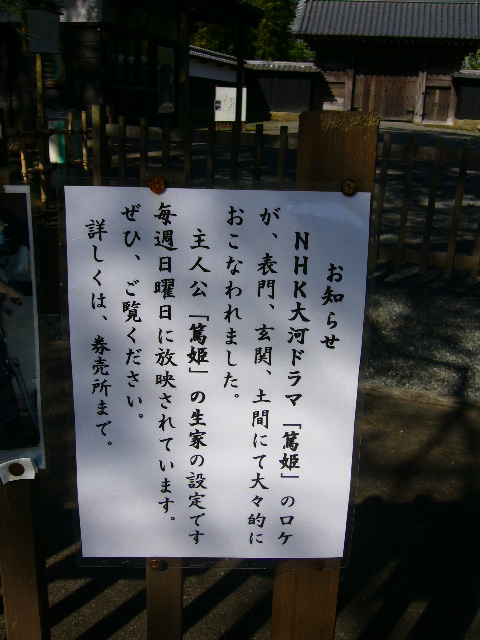 お知らせ
NHK大河ドラマ「篤姫」のロケ
が、表門、玄関、土間にて大々的に
おこなわれました。
主人公「篤姫」の生家の設定です
毎週日曜日に放映されています。
ぜひ、ご覧ください。
詳しくは、券売所まで。